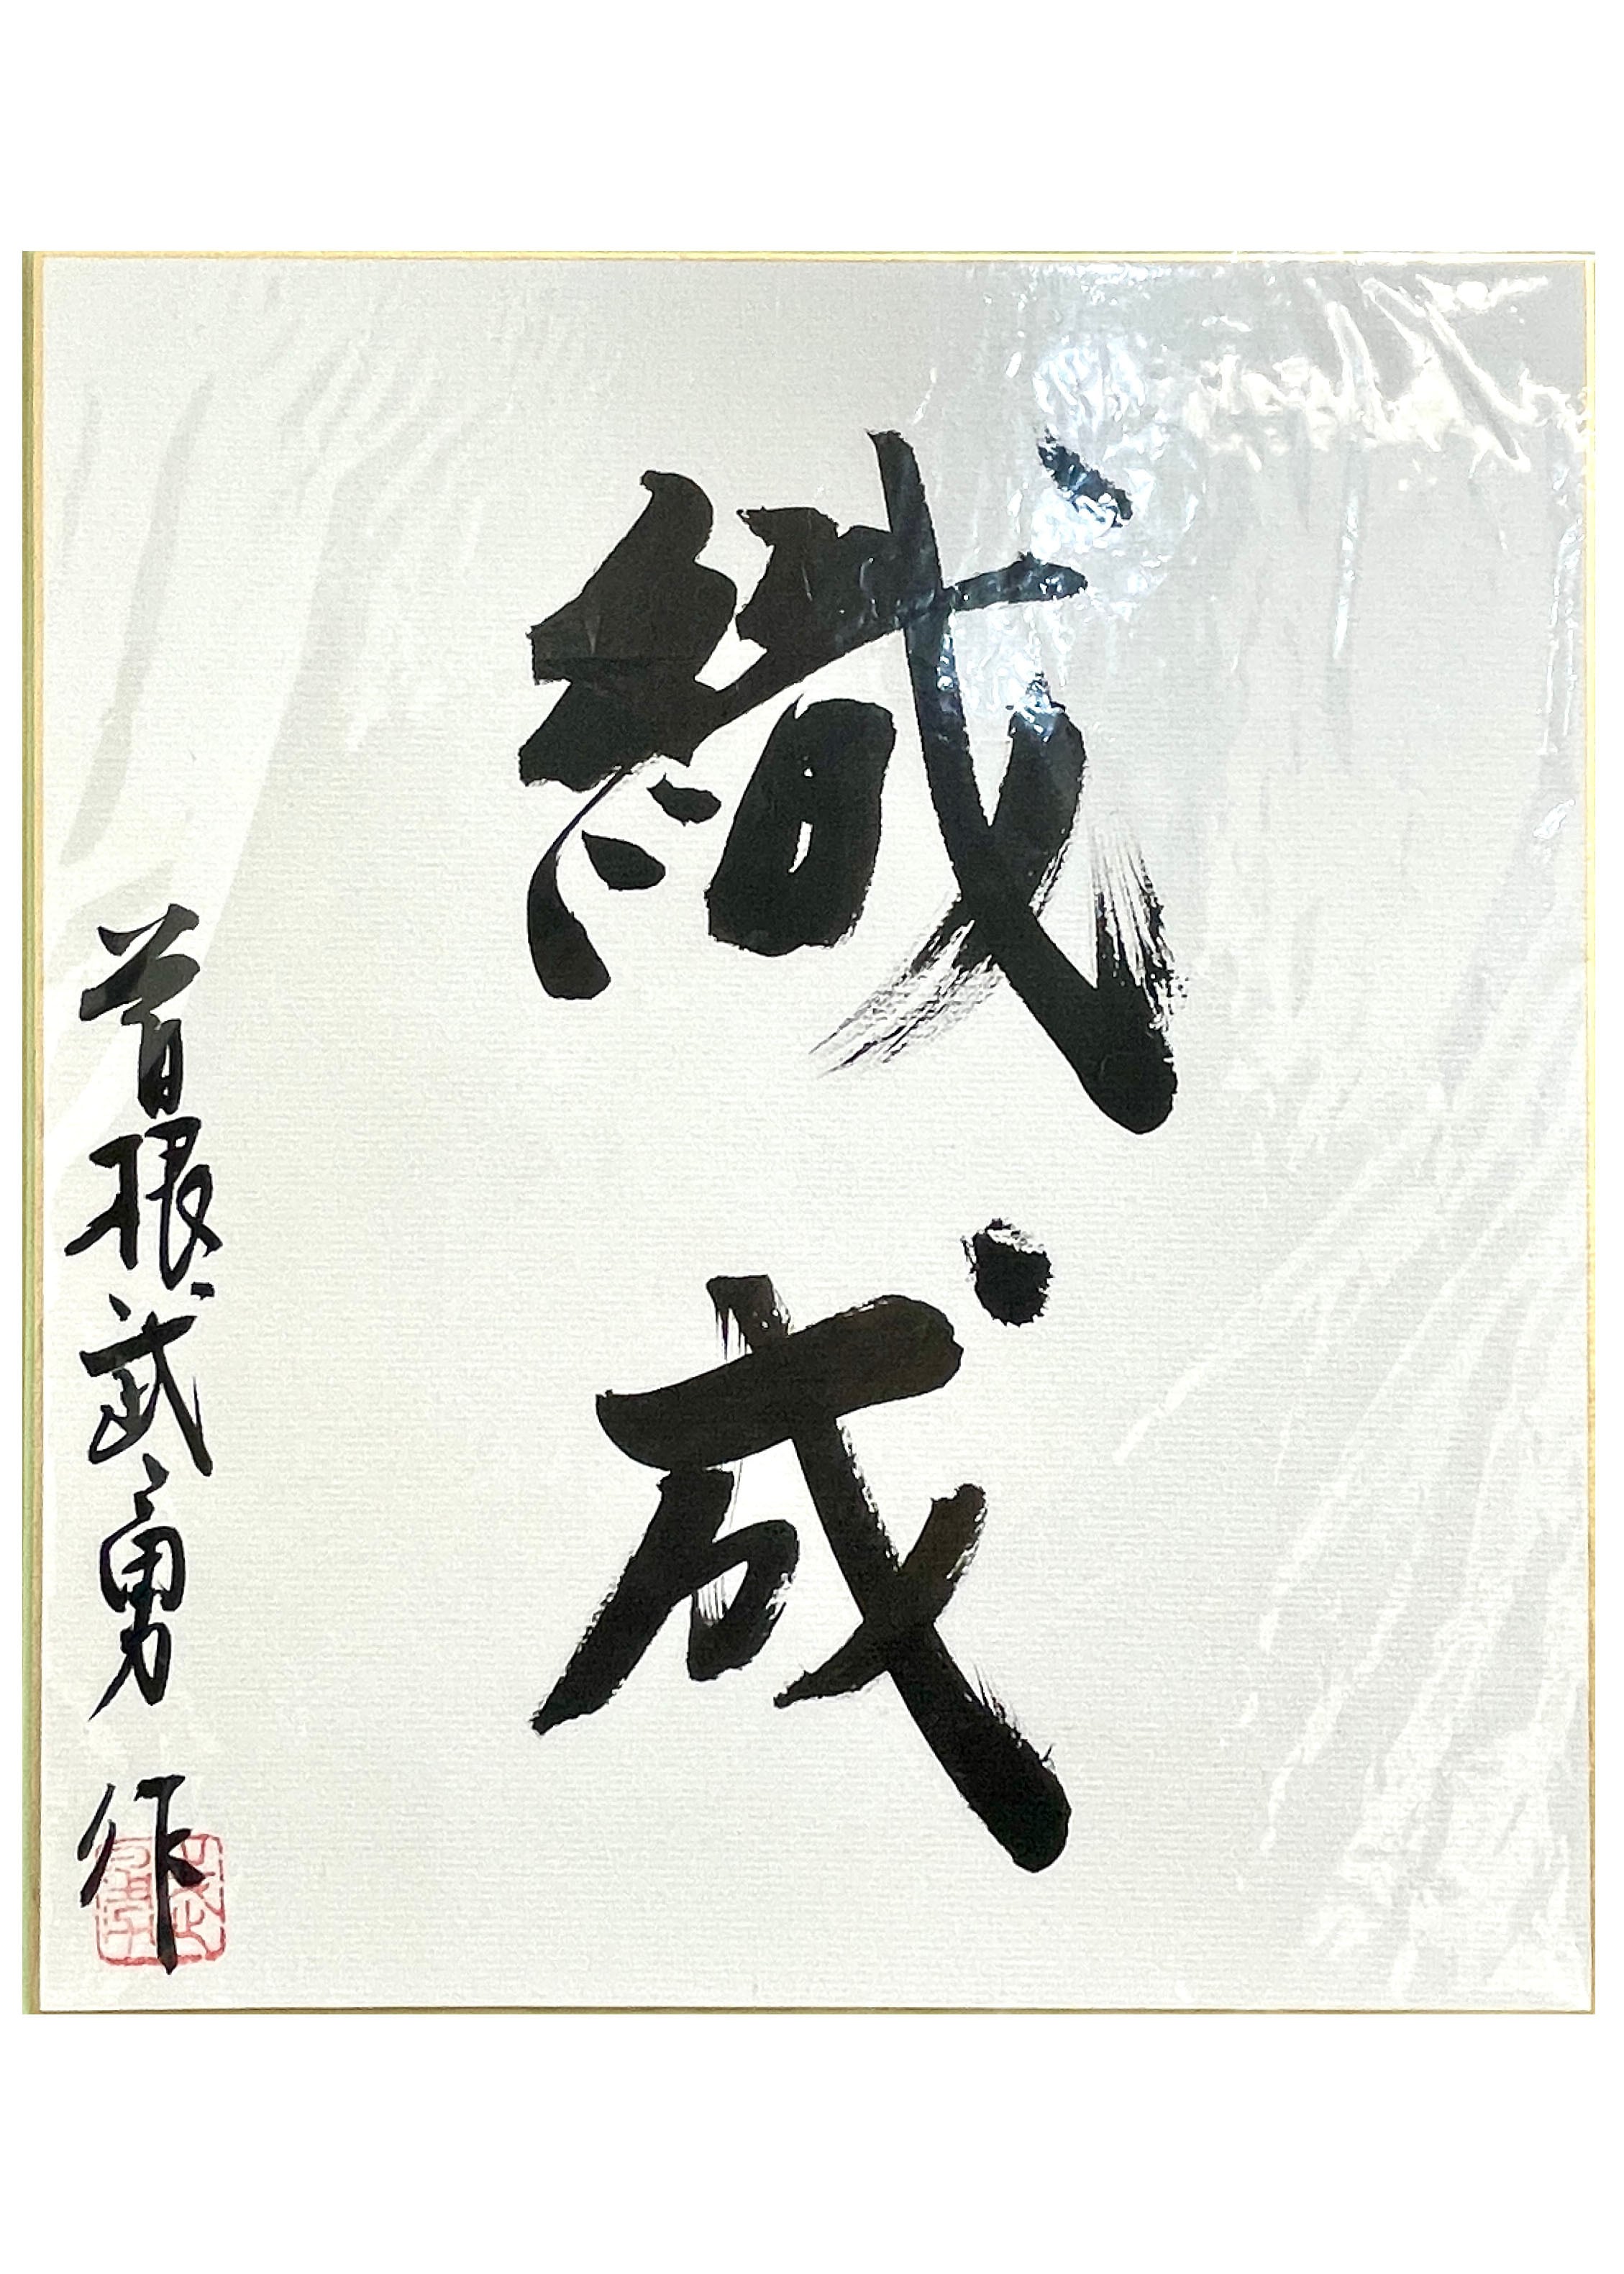 織成
曽根武勇 作